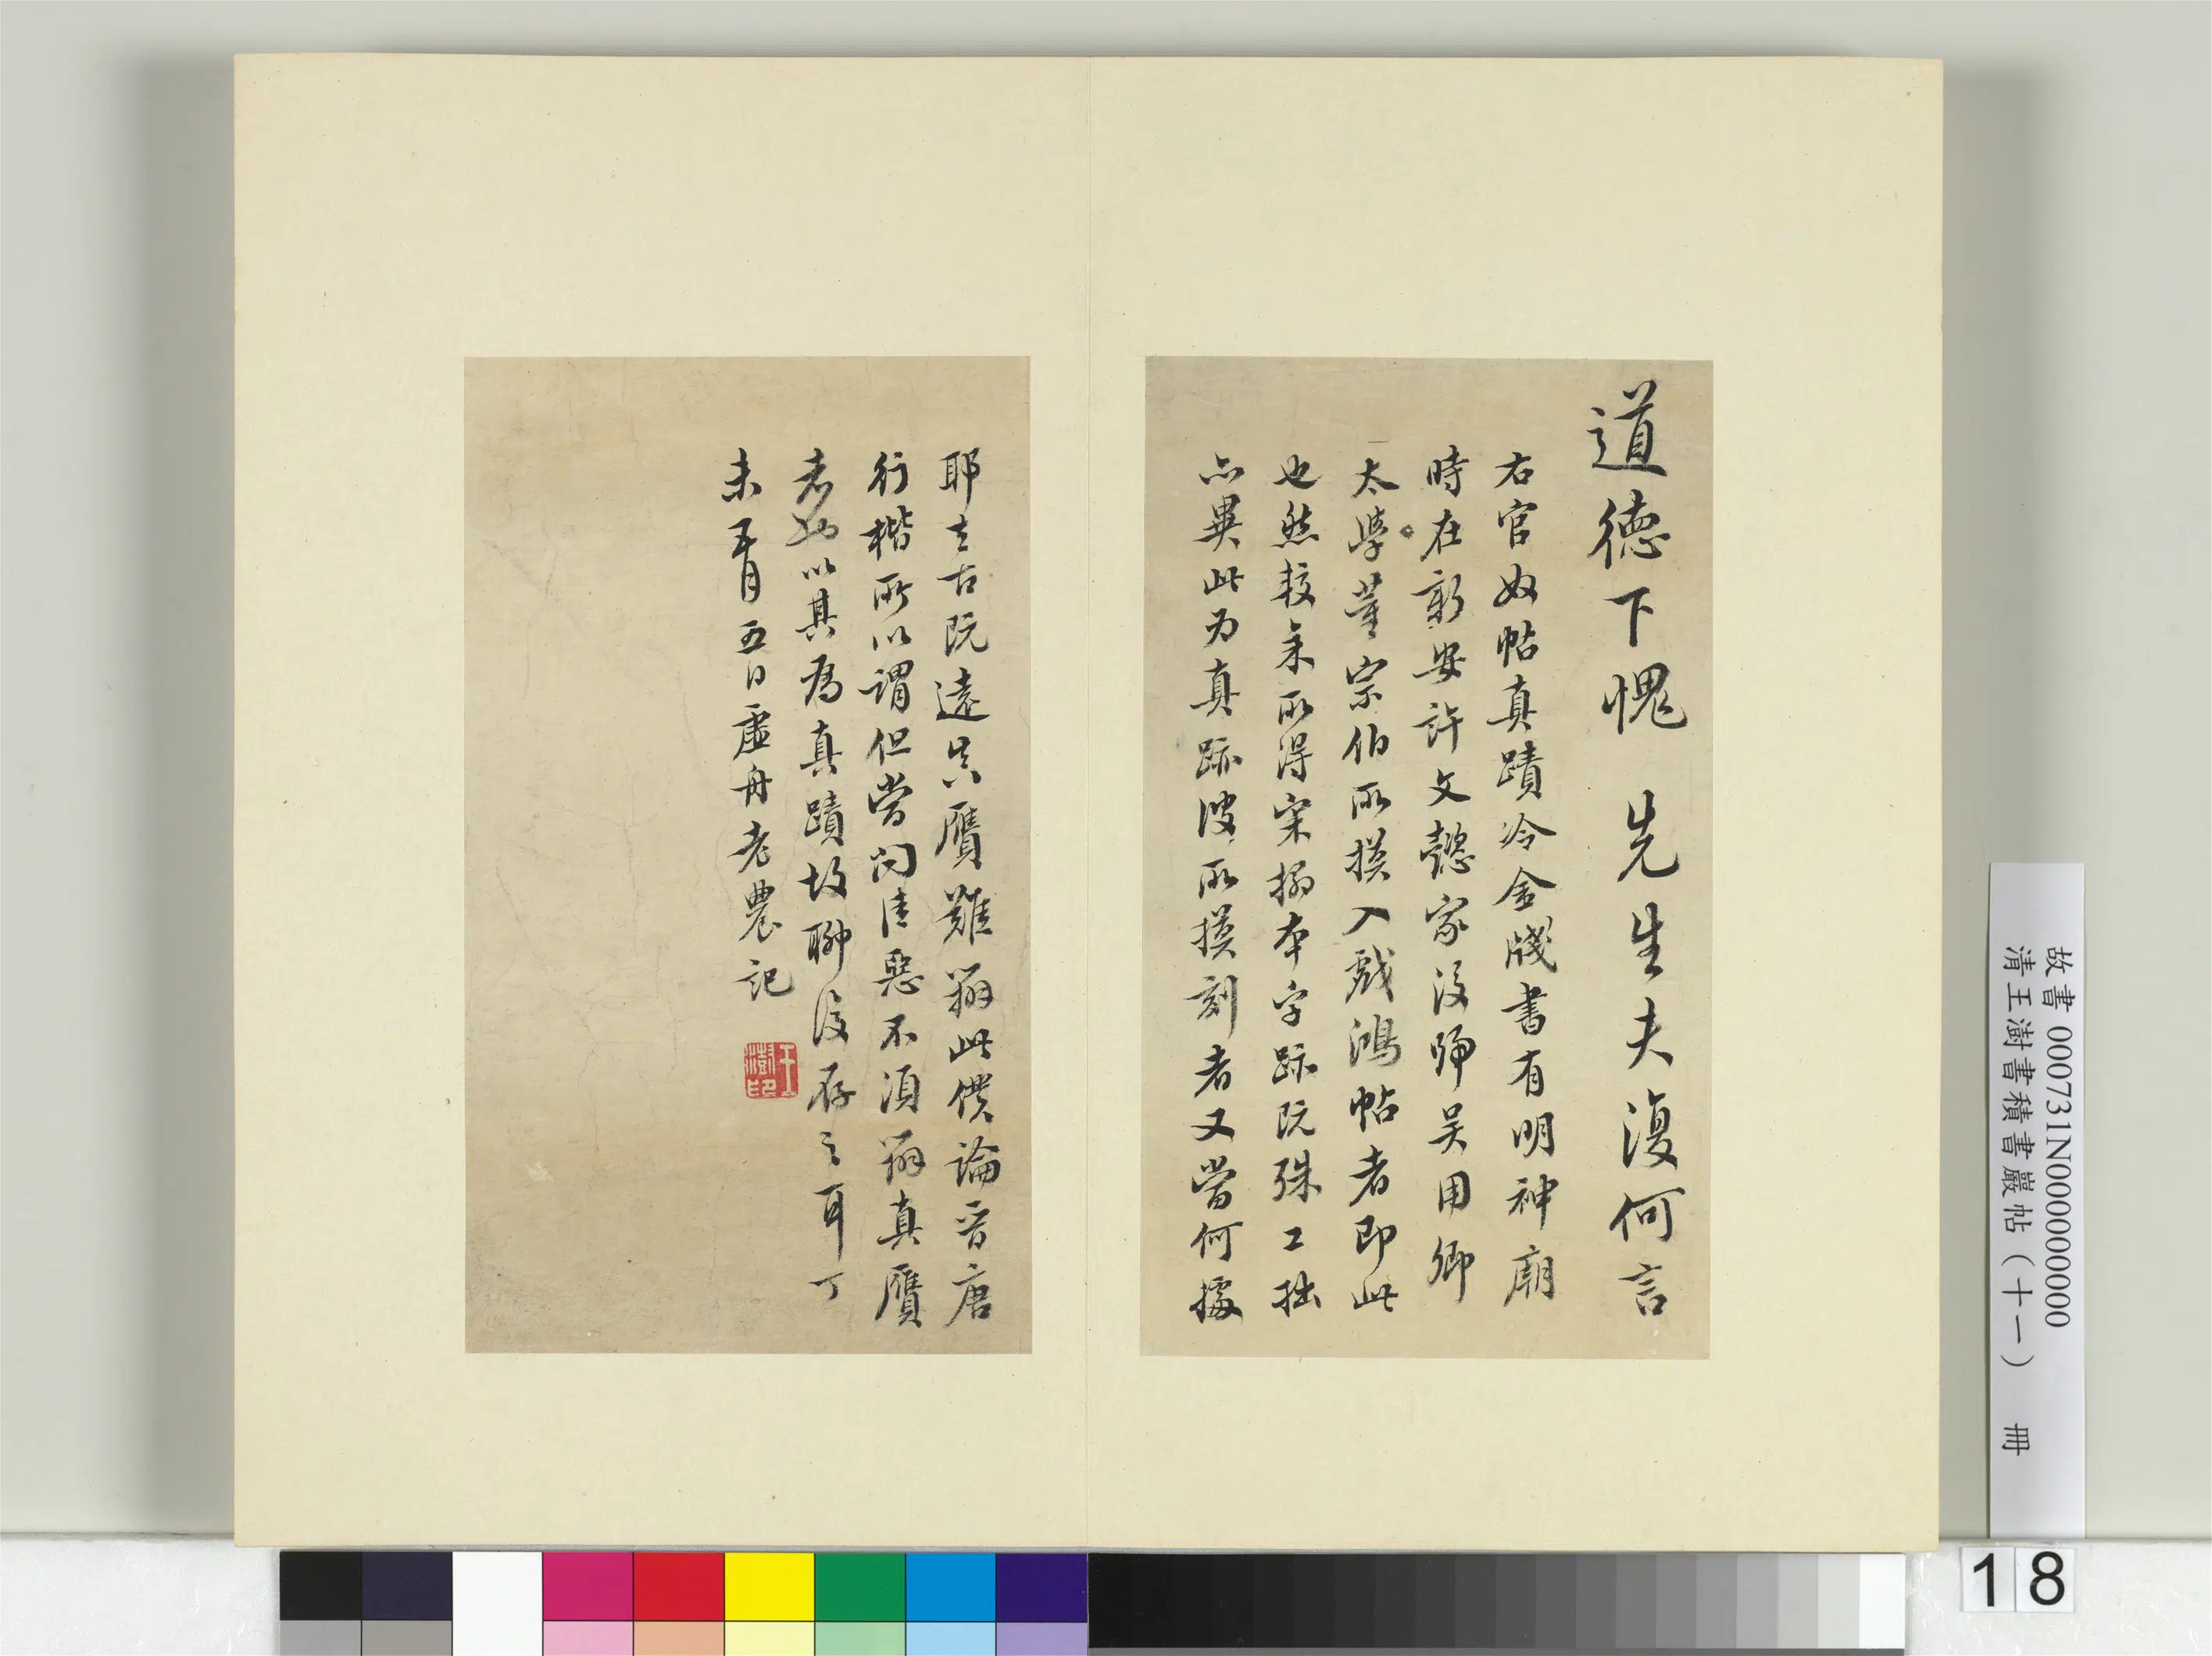 道德下愧 先生夫復何言
右官奴帖真蹟冷金牋書有明神廟
時在新安許文懿家後歸吳用卿
太學董宗伯所摸入戲鴻帖者即此
也然較余所得宋搨本字跡既殊工拙
亦異此为真跡彼所摸刻者又當何據
耶去古既遠真贋難辨此僕論晋唐
行楷所以謂但當问佳惡不須辨真贋
者也以其為真蹟故聊復存之耳丁
未五月五日虛舟老農記
王澍印
故書 000731N000000000
清王澍書積書巖帖(十一) 冊
18